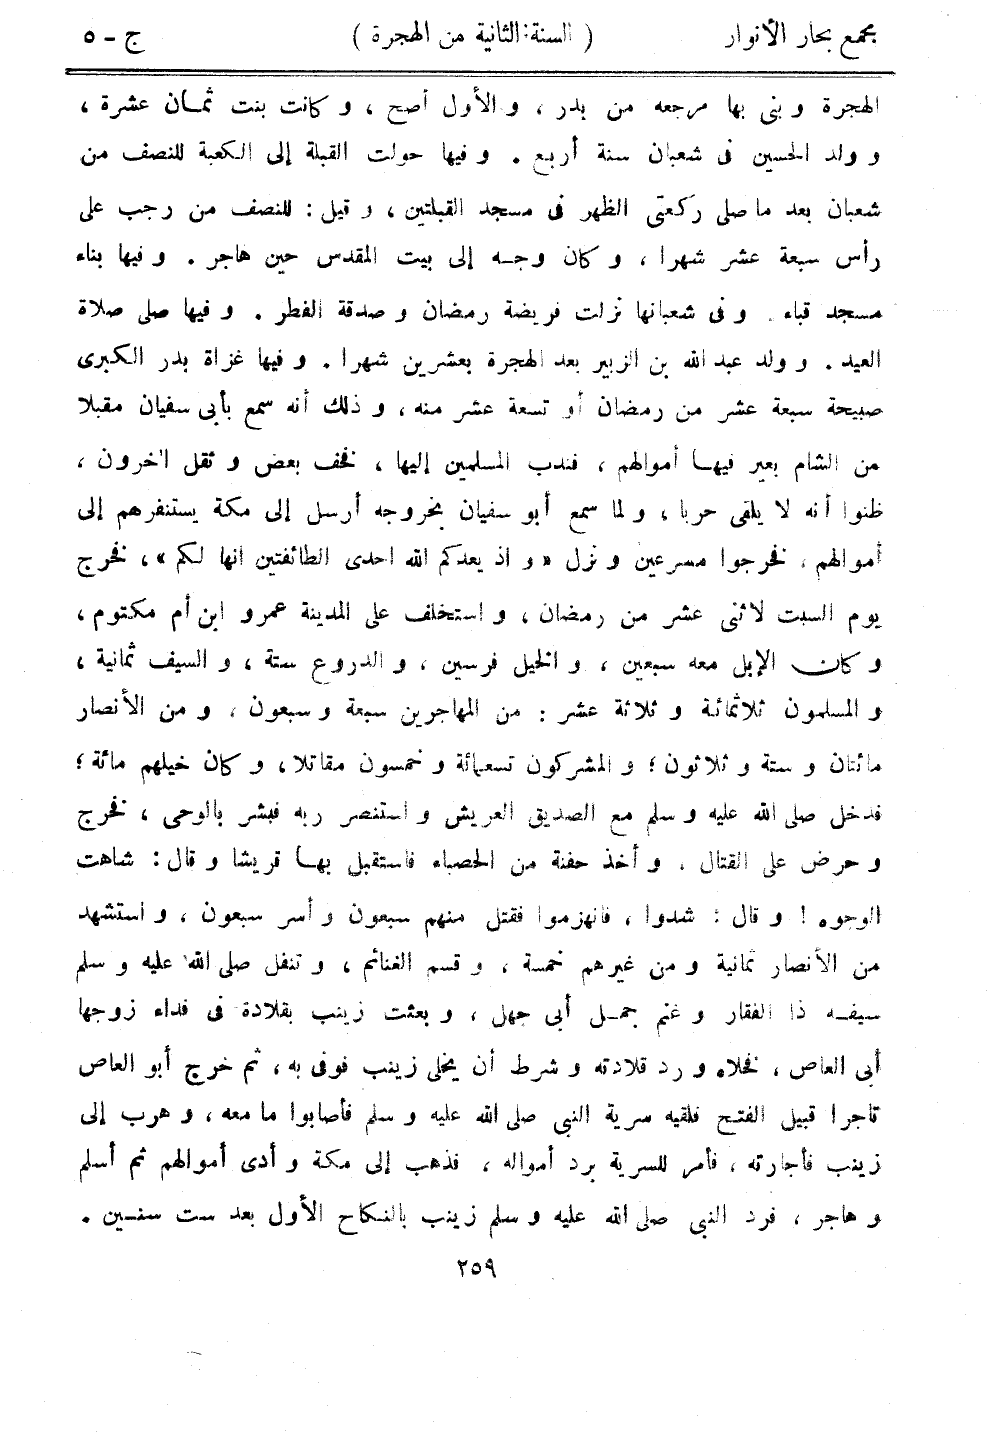 مجمع بحار الأنوار ( السنة الثانية من الهجرة ) ج - ٥
الهجرة و بنى بها مرجعه من بدر ، و الأول أصح ، و كانت بنت ثمان عشرة ،
و ولد الحسين فى شعبان سنة أربع . و فيها حولت القبلة إلى الكعبة للنصف من
شعبان بعد ما صلى ركعتى الظهر فى مسجد القبلتين ، و قيل : للنصف من رجب على
رأس سبعة عشر شهرا ، و كان وجه إلى بيت المقدس حين هاجر . و فيها بناء
مسجد قباء . و فى شعبانها نزلت فريضة رمضان و صدقة الفطر . و فيها صلى صلاة
العيد . و ولد عبد الله بن الزبير بعد الهجرة بعشرين شهرا . و فيها غزاة بدر الكبرى
صبيحة سبعة عشر من رمضان أو تسعة عشر منه ، و ذلك أنه سمع بأبى سفيان مقبلا
من الشام بعير فيها أموالهم ، فندب المسلمين إليها ، فخف بعض و ثقل آخرون ،
ظنوا أنه لا يلقى حربا ، و لما سمع أبو سفيان بخروجه أرسل إلى مكة يستنفرهم إلى
أموالهم ، فخرجوا مسرعين و نزل « و اذ يعدكم الله احدى الطائفتين انها لكم » ، فخرج
يوم السبت لاثنى عشر من رمضان ، و استخلف على المدينة عمرو ابن أم مكتوم ،
و كان الإبل معه سبعين ، و الخيل فرسين ، و الدروع ستة ، و السيف ثمانية ،
و المسلمون ثلاثمائة و ثلاثة عشر : من المهاجرين سبعة و سبعون ، و من الأنصار
مائتان و ستة و ثلاثون ؛ و المشركون تسعمائة و خمسون مقاتلا ، و كان خيلهم مائة ؛
فدخل صلى الله عليه و سلم مع الصديق العريش و استنصر ربه فبشر بالوحى ، فخرج
و حرض على القتال . و أخذ حفنة من الحصباء فاستقبل بها قريشا و قال : شاهت
الوجوه ! و قال : شدوا ، فانهزموا فقتل منهم سبعون و أسر سبعون ، و استشهد
من الأنصار ثمانية و من غيرهم خمسة ، و قسم الغنائم ، و تنفل صلى الله عليه و سلم
سيفه ذا الفقار و غنم جمل أبى جهل ، و بعثت زينب بقلادة فى فداء زوجها
أبى العاص ، فخلاه و رد قلادته و شرط أن يخلى زينب فوفى به ، ثم خرج أبو العاص
تاجرا قبيل الفتح فلقيه سرية النبى صلى الله عليه و سلم فأصابوا ما معه ، و هرب إلى
زينب فأجارته ، فأمر للسرية برد أمواله ، فذهب إلى مكة و أدى أموالهم ثم أسلم
و هاجر ، فرد النبى صلى الله عليه و سلم زينب بالنكاح الأول بعد ست سنين .
٢٥٩